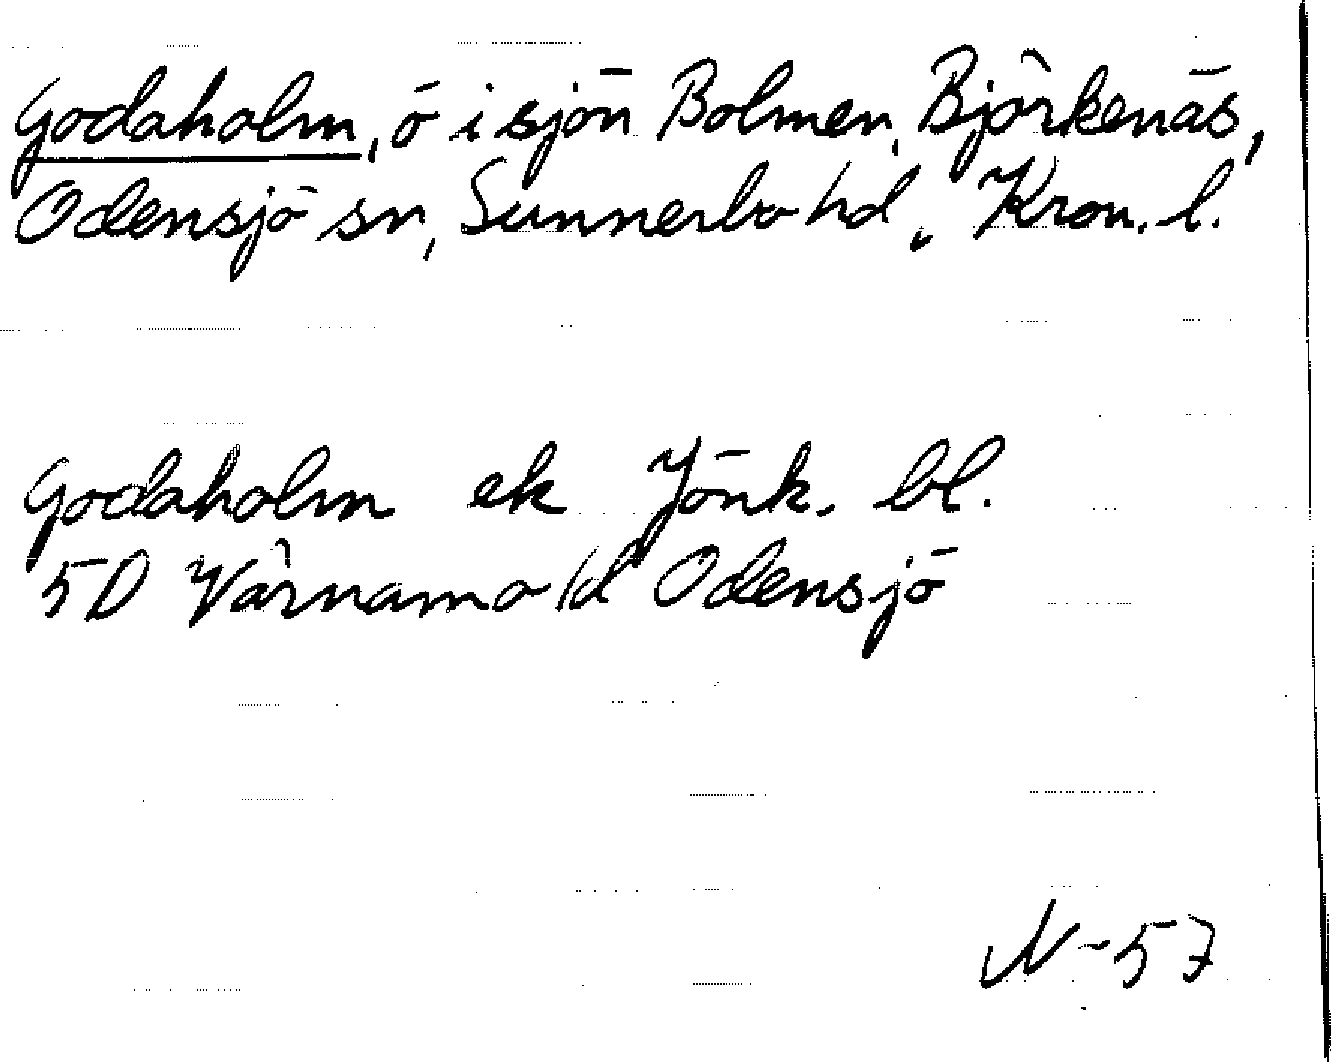 Godaholm, ö i sjön Bolmen, Björkenäs,
Odensjö sn, Sunnerbo hd, Kron. l.
Godaholm ek Jönk. bl.
5D Värnamo ld Odensjö
N-57